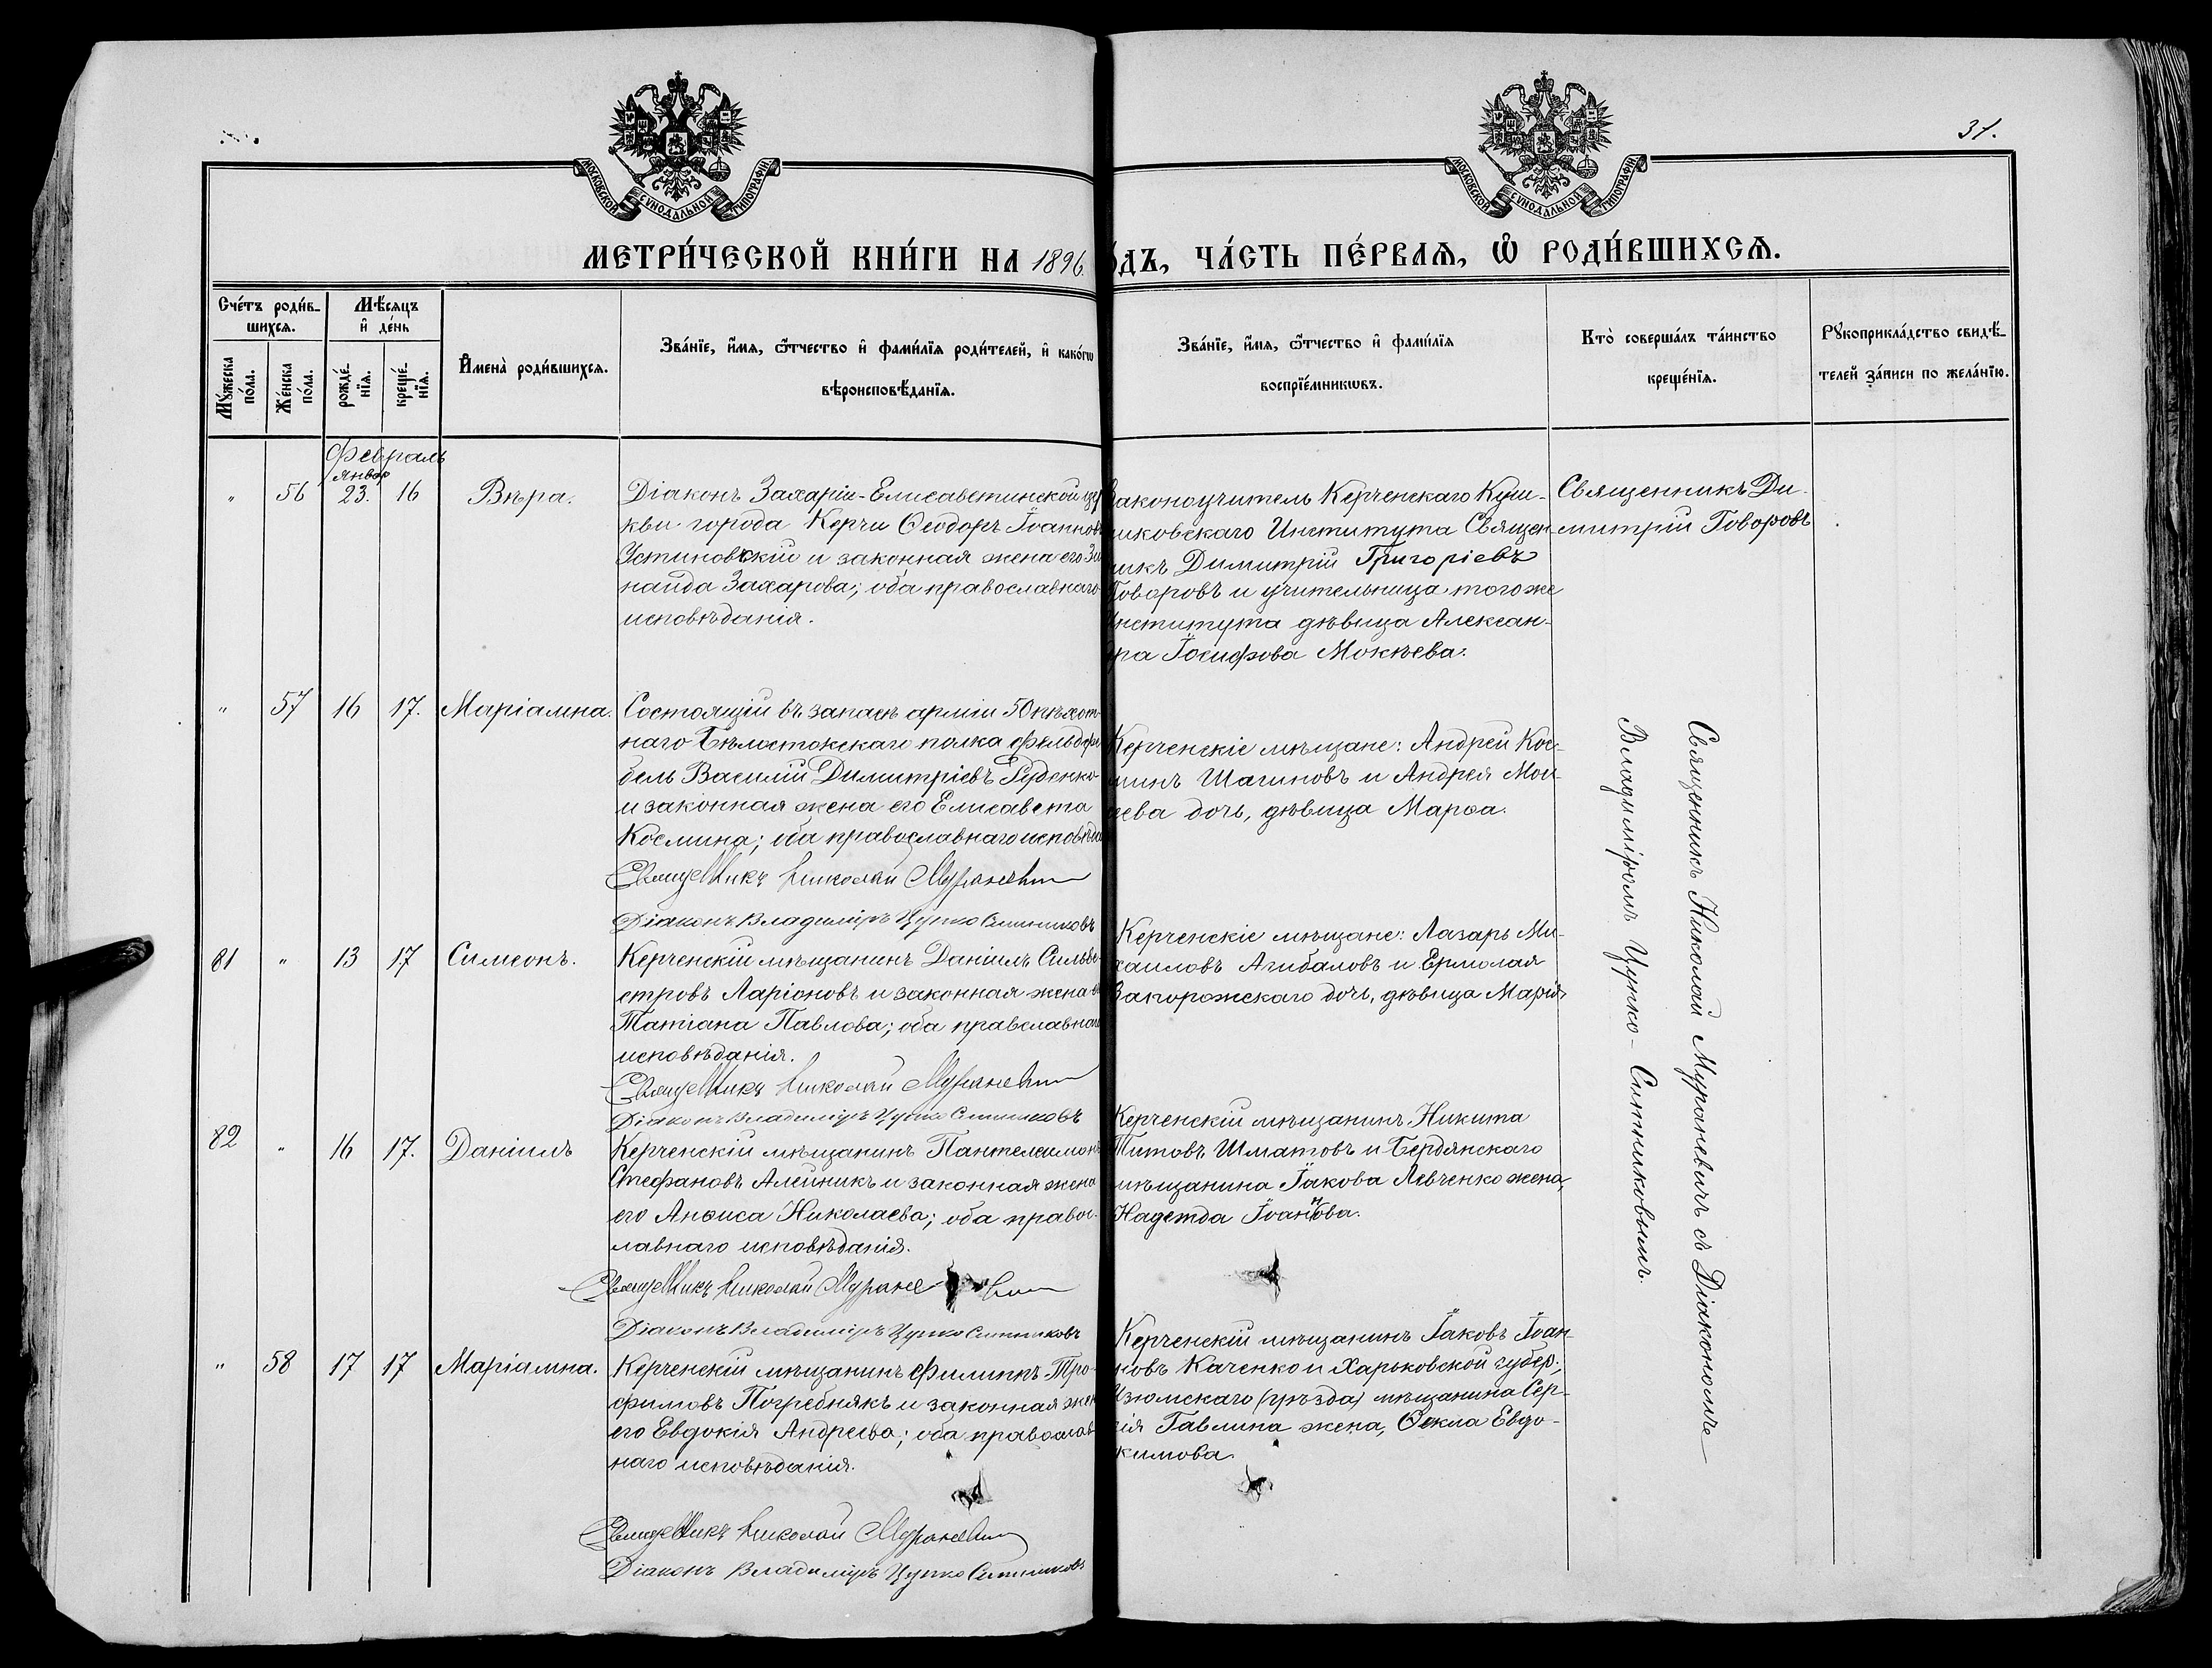 31.
МОСКОВСКОЙ СѴНОДАЛЬНОЙ ТИПОГРАФІИ
МОСКОВСКОЙ СѴНОДАЛЬНОЙ ТИПОГРАФІИ
МЕТРИ́ЧЕСКОЙ КНИ́ГИ НА 1896 ОДЪ, ЧА́СТЬ ПЕ́РВАѦ, Ѡ РОДИ́ВШИХСѦ.
Сче́тъ роди́в-
шихсѧ.
Мꙋ́жеска по́ла.
Же́нска по́ла.
Мѣ́сѧцъ
и де́нь
рожде́-
нїѧ.
креще́-
нїѧ.
И҆мена̀ роди́вшихсѧ.
Зва́нїе, и҆́мѧ, ѻ҆́тчество и҆ фами́лїѧ роди́телей, и҆ како́гѡ
вѣроисповѣ́данїѧ.
Зва́нїе, и҆́мѧ, ѻ҆́тчество и҆ фами́лїѧ
воспрїе́мникѡвъ.
Кто̀ соверша́лъ та́инство
креще́нїѧ.
Рꙋкоприкла́дство свидѣ́-
телей за́писи по жела́нїю.
Февраль
Январ
" 56 23. 16 Вѣра.
Діаконъ Захаріи-Елисаветинской цер
кви города Керчи Ѳеодоръ Іоаннов
Устиновскій и законная жена его Зи
наида Захарова; оба православнаго
исповѣданія.
Законоучитель Керченскаго Куш-
никовскаго Института Священ-
никъ Димитрій Григоріевъ
Говоровъ и учительница того же
Института дѣвица Алексан-
дра Іосифова Мокѣева.
Священникъ Ди-
митрій Говоровъ
" 57 16 17. Маріамна.
Состоящій въ запасѣ арміи 50 пѣхот-
наго Бѣлостокскаго полка фельдфе
бель Василій Димитріевъ Руденко
и законная жена его Елисавета
Космина; оба православнаго исповѣда
Священникъ Николай Мураневич
Діаконъ Владиміръ Цупко Ситниковъ
Керченскіе мѣщане: Андрей Кос-
минъ Шагиновъ и Андрея Мои-
сеева дочь, дѣвица Марѳа.
Священникъ Николай Мураневичъ съ Діакономъ
Владиміромъ Цупко-Ситниковымъ.
81 " 13 17 Симеонъ.
Керченскій мѣщанинъ Даніилъ Сильве
стровъ Ларіоновъ и законная жена е
Татіана Павлова; оба православнаго
исповѣданія.
Священникъ Николай Мураневич
Діаконъ Владиміръ Цупко Ситниковъ
Керченскіе мѣщане: Лазарь Ми-
хаиловъ Агибаловъ и Ермолая
Запорожскаго дочь, дѣвица Марія.
82 " 16 17. Даніилъ
Керченскій мѣщанинъ Пантелеимонъ
Стефановъ Алейникъ и законная жена
его Анѳиса Николаева; оба правос-
лавнаго исповѣданія.
Священникъ Николай Мураневич
Діаконъ Владиміръ Цупко Ситниковъ
Керченскій мѣщанинъ Никита
Титовъ Шматовъ и Бердянскаго
мѣщанина Іакова Левченко жена,
Надежда Іоаннова.
" 58 17 17 Маріамна.
Керченскій мѣщанинъ Филиппъ Тро-
фимовъ Погребнякъ и законная жен
его Евдокія Андреева; оба православ
наго исповѣданія.
Священникъ Николай Мураневич
Діаконъ Владиміръ Цупко Ситниковъ
Керченскій мѣщанинъ Іаковъ Іоан-
новъ Каченко и Харьковской губер.,
Изюмскаго (уѣзда) мѣщанина Сер-
гія Гавлина жена, Ѳекла Евдо-
кимова.